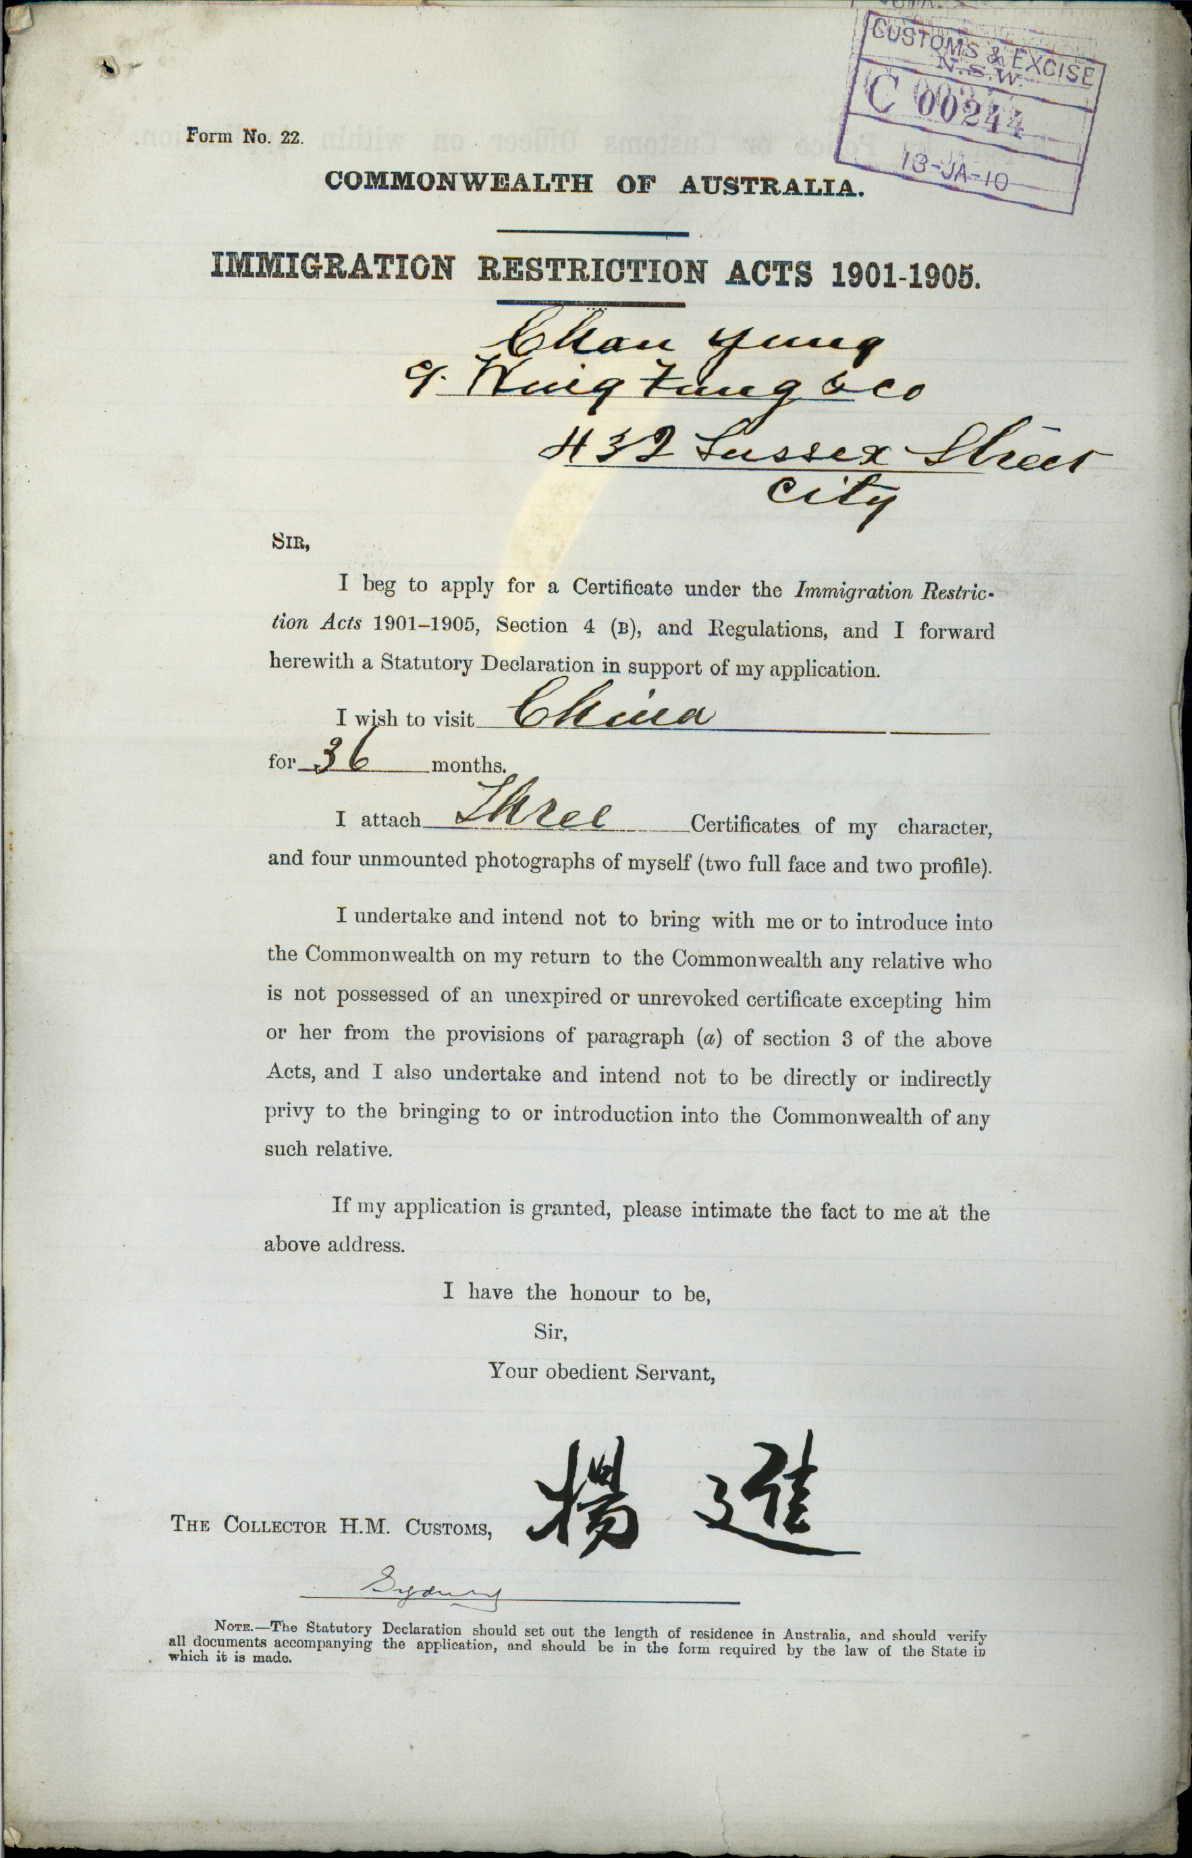 CUSTOMS & EXCISE
N.S.W.
C 00244
13-JA-10
Form No. 22.
COMMONWEALTH OF AUSTRALIA.
IMMIGRATION RESTRICTION ACTS 1901-1905.
Chan Yung
c/. Wing Fung & Co
432 Sussex Street
City
SIR,
I beg to apply for a Certificate under the Immigration Restric-
tion Acts 1901–1905, Section 4 (B), and Regulations, and I forward
herewith a Statutory Declaration in support of my application.
I wish to visit China
for 36 months.
I attach Three Certificates of my character,
and four unmounted photographs of myself (two full face and two profile).
I undertake and intend not to bring with me or to introduce into
the Commonwealth on my return to the Commonwealth any relative who
is not possessed of an unexpired or unrevoked certificate excepting him
or her from the provisions of paragraph (a) of section 3 of the above
Acts, and I also undertake and intend not to be directly or indirectly
privy to the bringing to or introduction into the Commonwealth of any
such relative.
If my application is granted, please intimate the fact to me at the
above address.
I have the honour to be,
Sir,
Your obedient Servant,
楊 進
THE COLLECTOR H.M. CUSTOMS,
Sydney
NOTE.—The Statutory Declaration should set out the length of residence in Australia, and should verify
all documents accompanying the application, and should be in the form required by the law of the State in
which it is made.